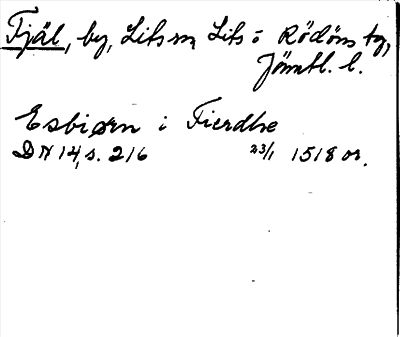 Fjäl, by, Lits sn, Lits o Rödöns tg,
Jämtl. l.
Esbiørn i Fierdhe
DN 14, s. 216 23/1 1518 or.